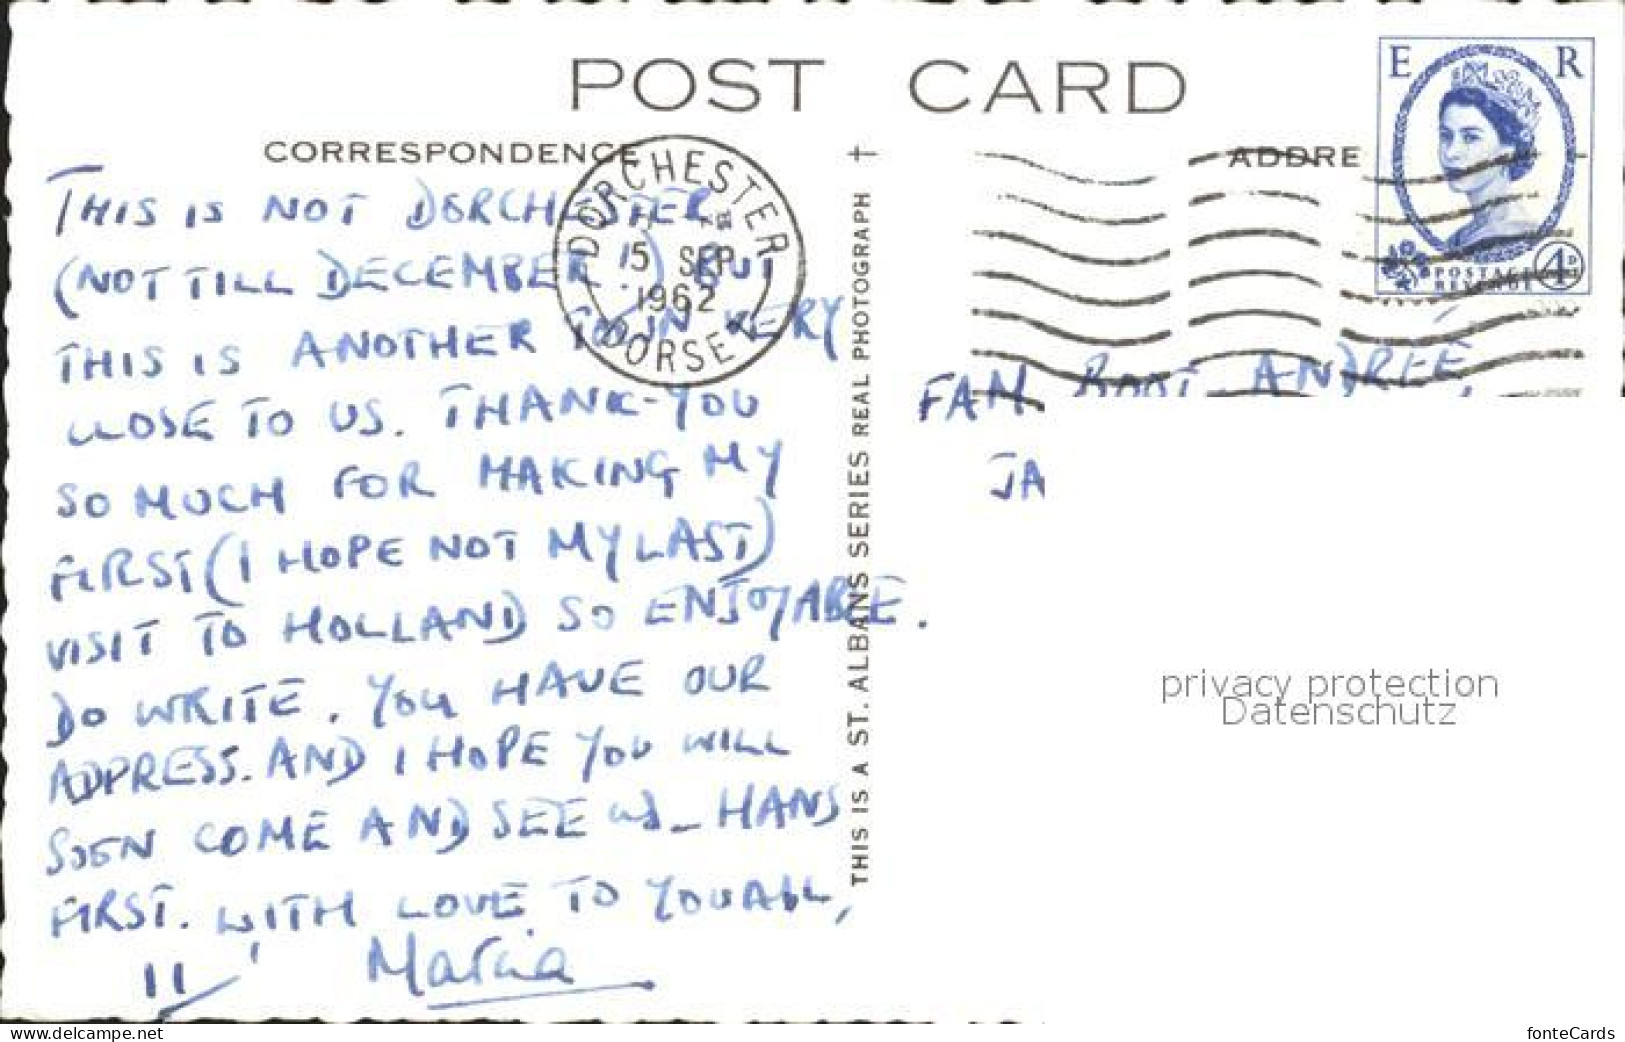 POST CARD
CORRESPONDENCE
ADDRE
E R
POSTAGE REVENUE 4D
DORCHESTER
15 SEP
1962
DORSET
THIS IS NOT DORCHESTER
(NOT TILL DECEMBER!) BUT
THIS IS ANOTHER TOWN VERY
CLOSE TO US. THANK-YOU
SO MUCH FOR MAKING MY
FIRST (I HOPE NOT MY LAST)
VISIT TO HOLLAND SO ENJOYABLE.
DO WRITE. YOU HAVE OUR
ADDRESS. AND I HOPE YOU WILL
SOON COME AND SEE US - HANS
FIRST. WITH LOVE TO YOU ALL,
THIS IS A ST. ALBANS SERIES REAL PHOTOGRAPH
FAM ANDRÉE,
JA
privacy protection
Datenschutz
www.delcampe.net
fonteCards